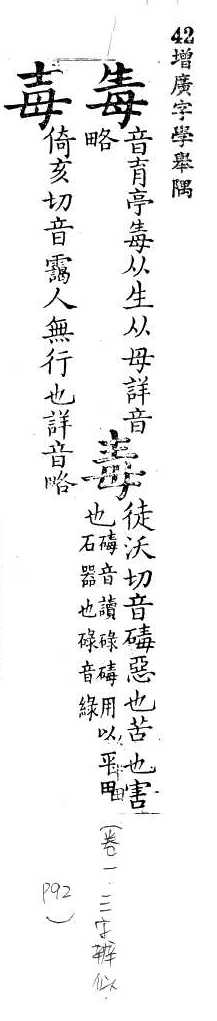 42增廣字學舉隅
𣫭 音育亭𣫭从生从毋詳音
略
毒 徒沃切音碡惡也苦也害
也 碡音讀碌碡用以平田
石器也碌音綠
毐 倚亥切音靄人無行也詳音略
(卷一 三字辨似
P92)